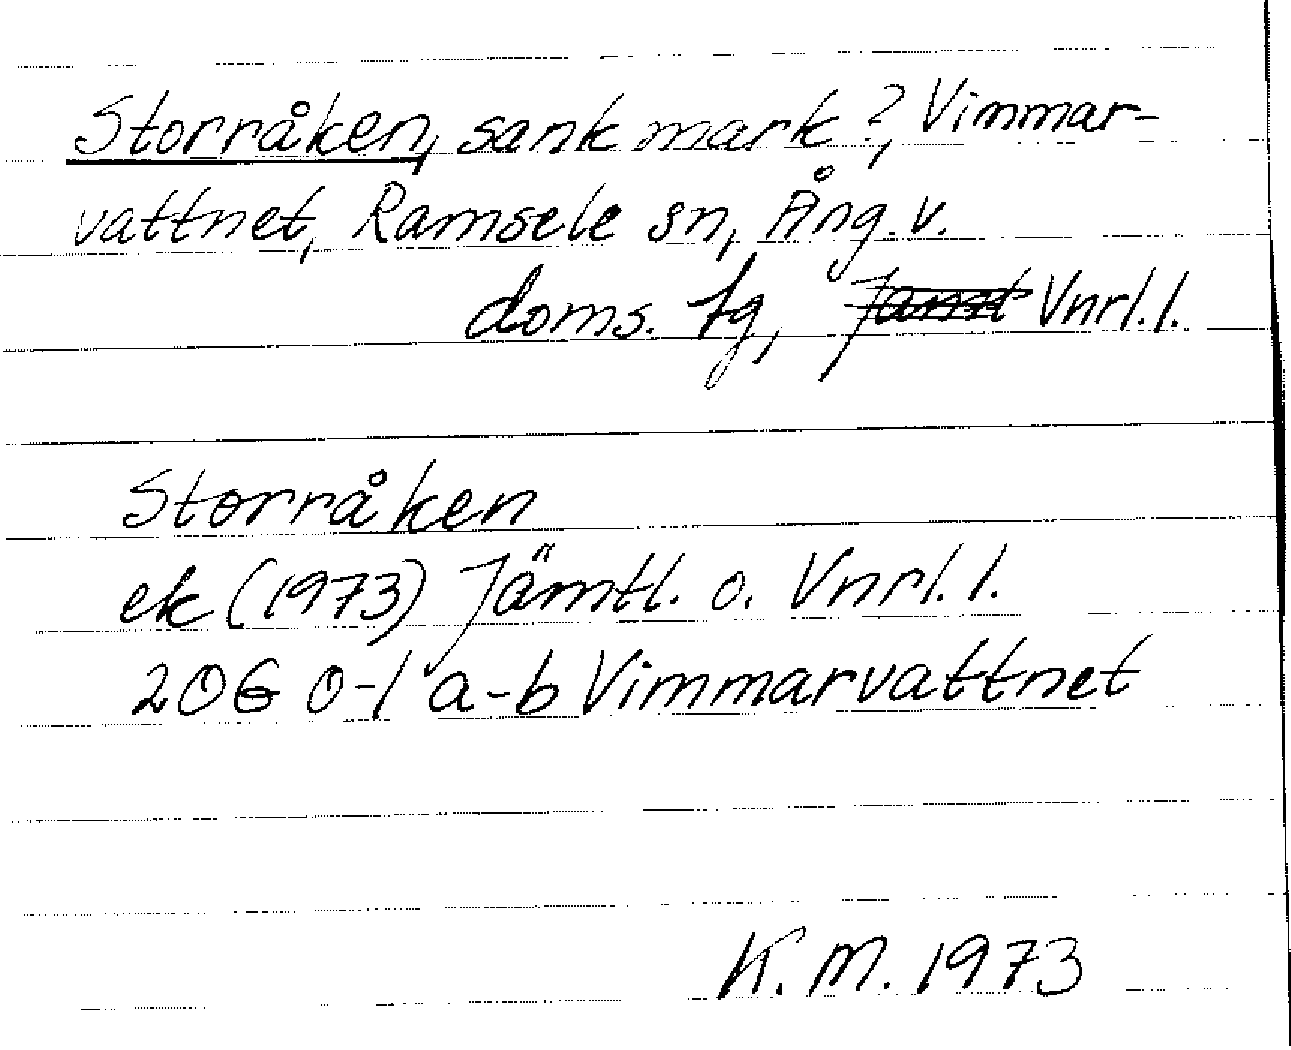 Storråken, sank mark?, Vimmar-
vattnet, Ramsele sn, Ång. v.
doms. tg, Jämt Vnrl. l.
Storråken
ek (1973) Jämtl. o. Vnrl. l.
20G 0-1 a-b Vimmarvattnet
K. M. 1973